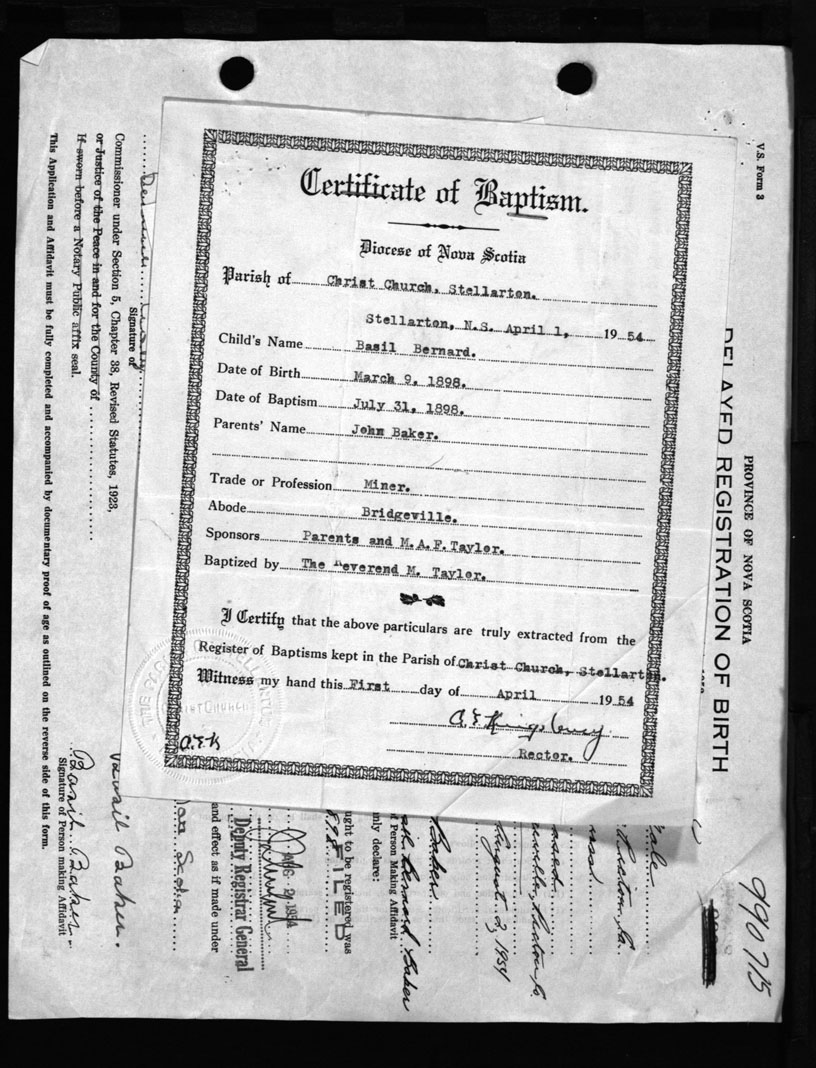 Certificate of Baptism.
Diocese of Nova Scotia
Parish of Christ Church, Stellarton.
Stellarton, N.S. April 1, 19 54
Child's Name Basil Bernard.
Date of Birth March 9, 1898.
Date of Baptism July 31, 1898.
Parents' Name John Baker.
Trade or Profession Miner.
Abode Bridgeville.
Sponsors Parents and M.A.F.Taylor.
Baptized by The Reverend M. Taylor.
I Certify that the above particulars are truly extracted from the
Register of Baptisms kept in the Parish of Christ Church, Stellarton.
Witness my hand this First day of April 19 54
A.E Kingsbury
Rector.
A.E.K
CHRIST CHURCH
V.S. Form 3
PROVINCE OF NOVA SCOTIA
DELAYED REGISTRATION OF BIRTH
990715
Pictou, Co.
August 2, 1954
Baker
Bernard Baker
of Person Making Affidavit
nly declare:
ught to be registered was
FILED
AUG 2 1954
Deputy Registrar General
and effect as if made under
Scotia
Baker.
Basil Baker.
Signature of Person making Affidavit
Signature of
Commissioner under Section 5, Chapter 38, Revised Statutes, 1923,
or Justice of the Peace in and for the County of
If sworn before a Notary Public affix seal.
This Application and Affidavit must be fully completed and accompanied by documentary proof of age as outlined on the reverse side of this form.